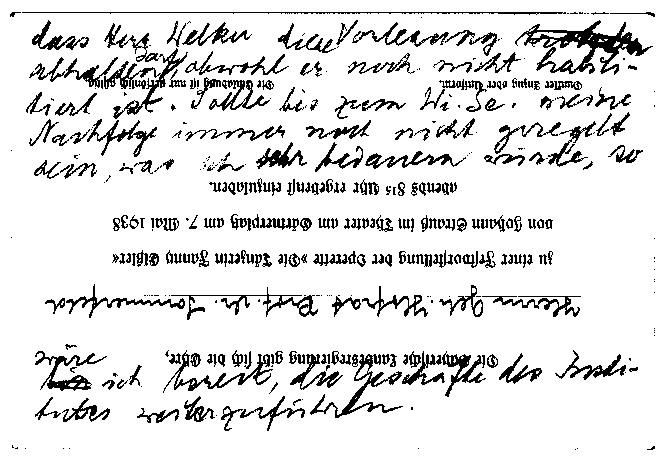 dass Herr Welker diese Vorlesung
abhalten darf, obwohl er noch nicht habili-
tiert ist. Sollte bis zum Wi. Se. meine
Nachfolge immer noch nicht geregelt
sein, was ich sehr bedauern würde, so
wäre
ich bereit, die Geschäfte des Insti-
tutes weiterzuführen.
Die Bayerische Landesregierung gibt sich die Ehre,
Herrn Geh. Hofrat Prof. Dr. Sommerfeld
zu einer Festvorstellung der Operette »Die Tänzerin Fanny Elßler«
von Johann Strauß im Theater am Gärtnerplatz am 7. Mai 1938
abends 8¹⁵ Uhr ergebenst einzuladen.
Dunkler Anzug oder Uniform.
Die Einladung ist nur persönlich gültig